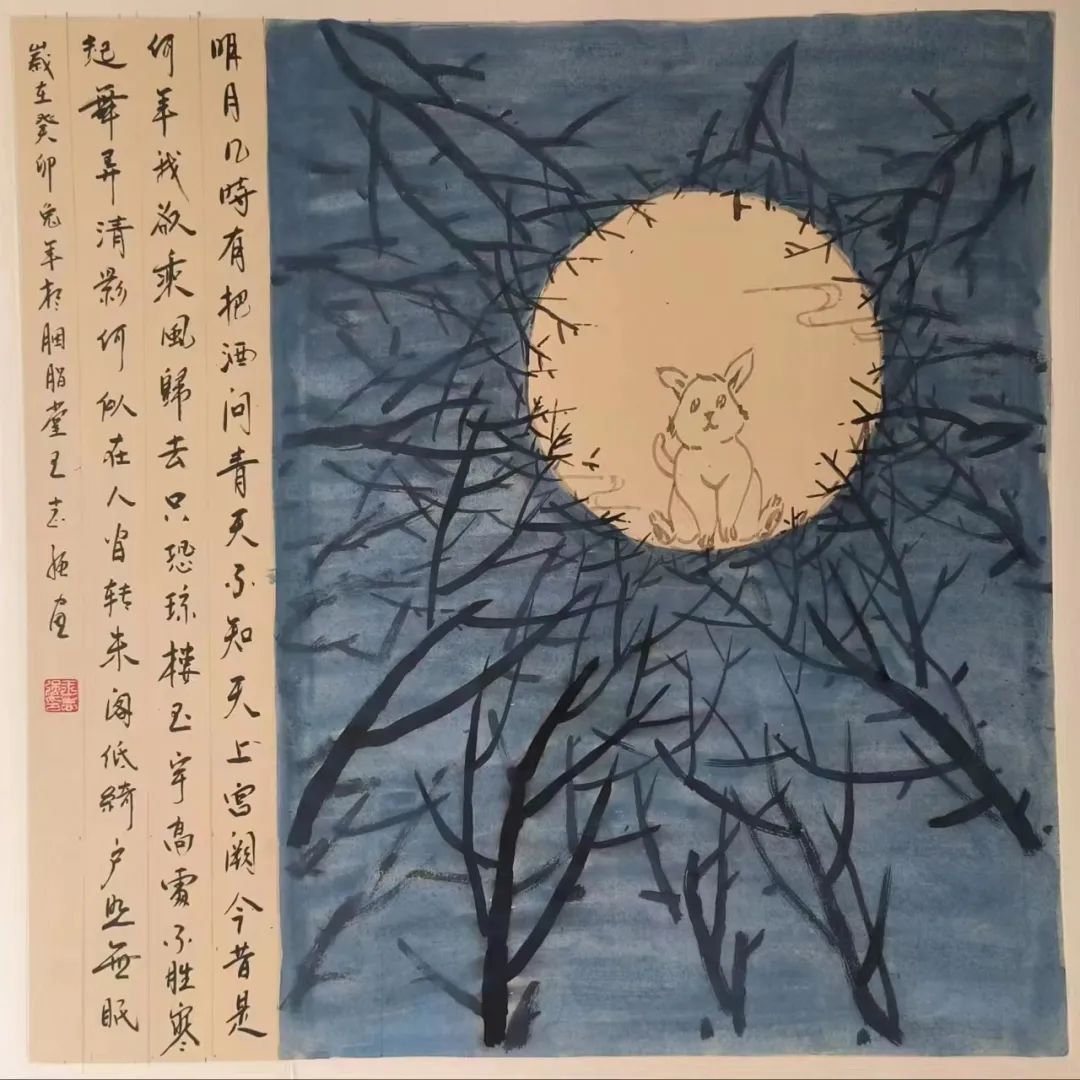 明月几時有把酒问青天不知天上宫阙今昔是
何年我欲乘風歸去只恐琼楼玉宇高處不胜寒
起舞弄清影何似在人间转朱阁低绮户照無眠
歲在癸卯兔年於胭脂堂王志强画